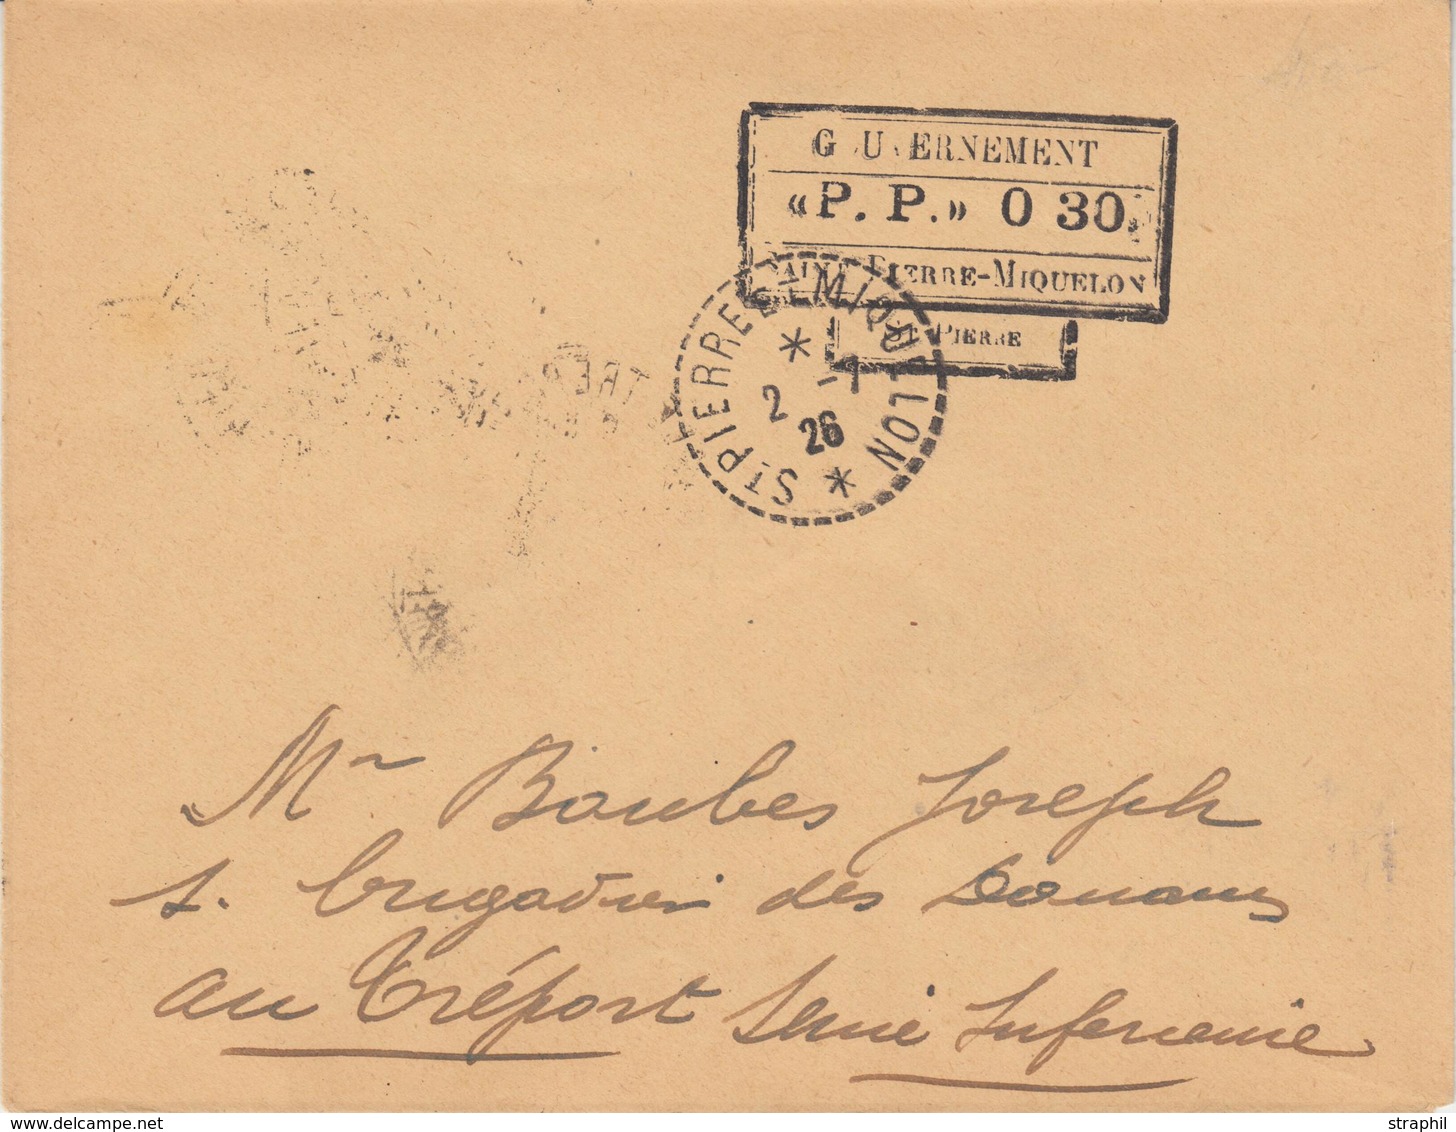 GOUVERNEMENT
« P. P. » 0 30
SAINT PIERRE-MIQUELON
ST PIERRE
ST PIERRE ET MIQUELON
2 -1
26
TREP
Mr Boubes Joseph
s. brigadier des Douanes
au Tréport Seine Inférieure
www.delcampe.net
straphil